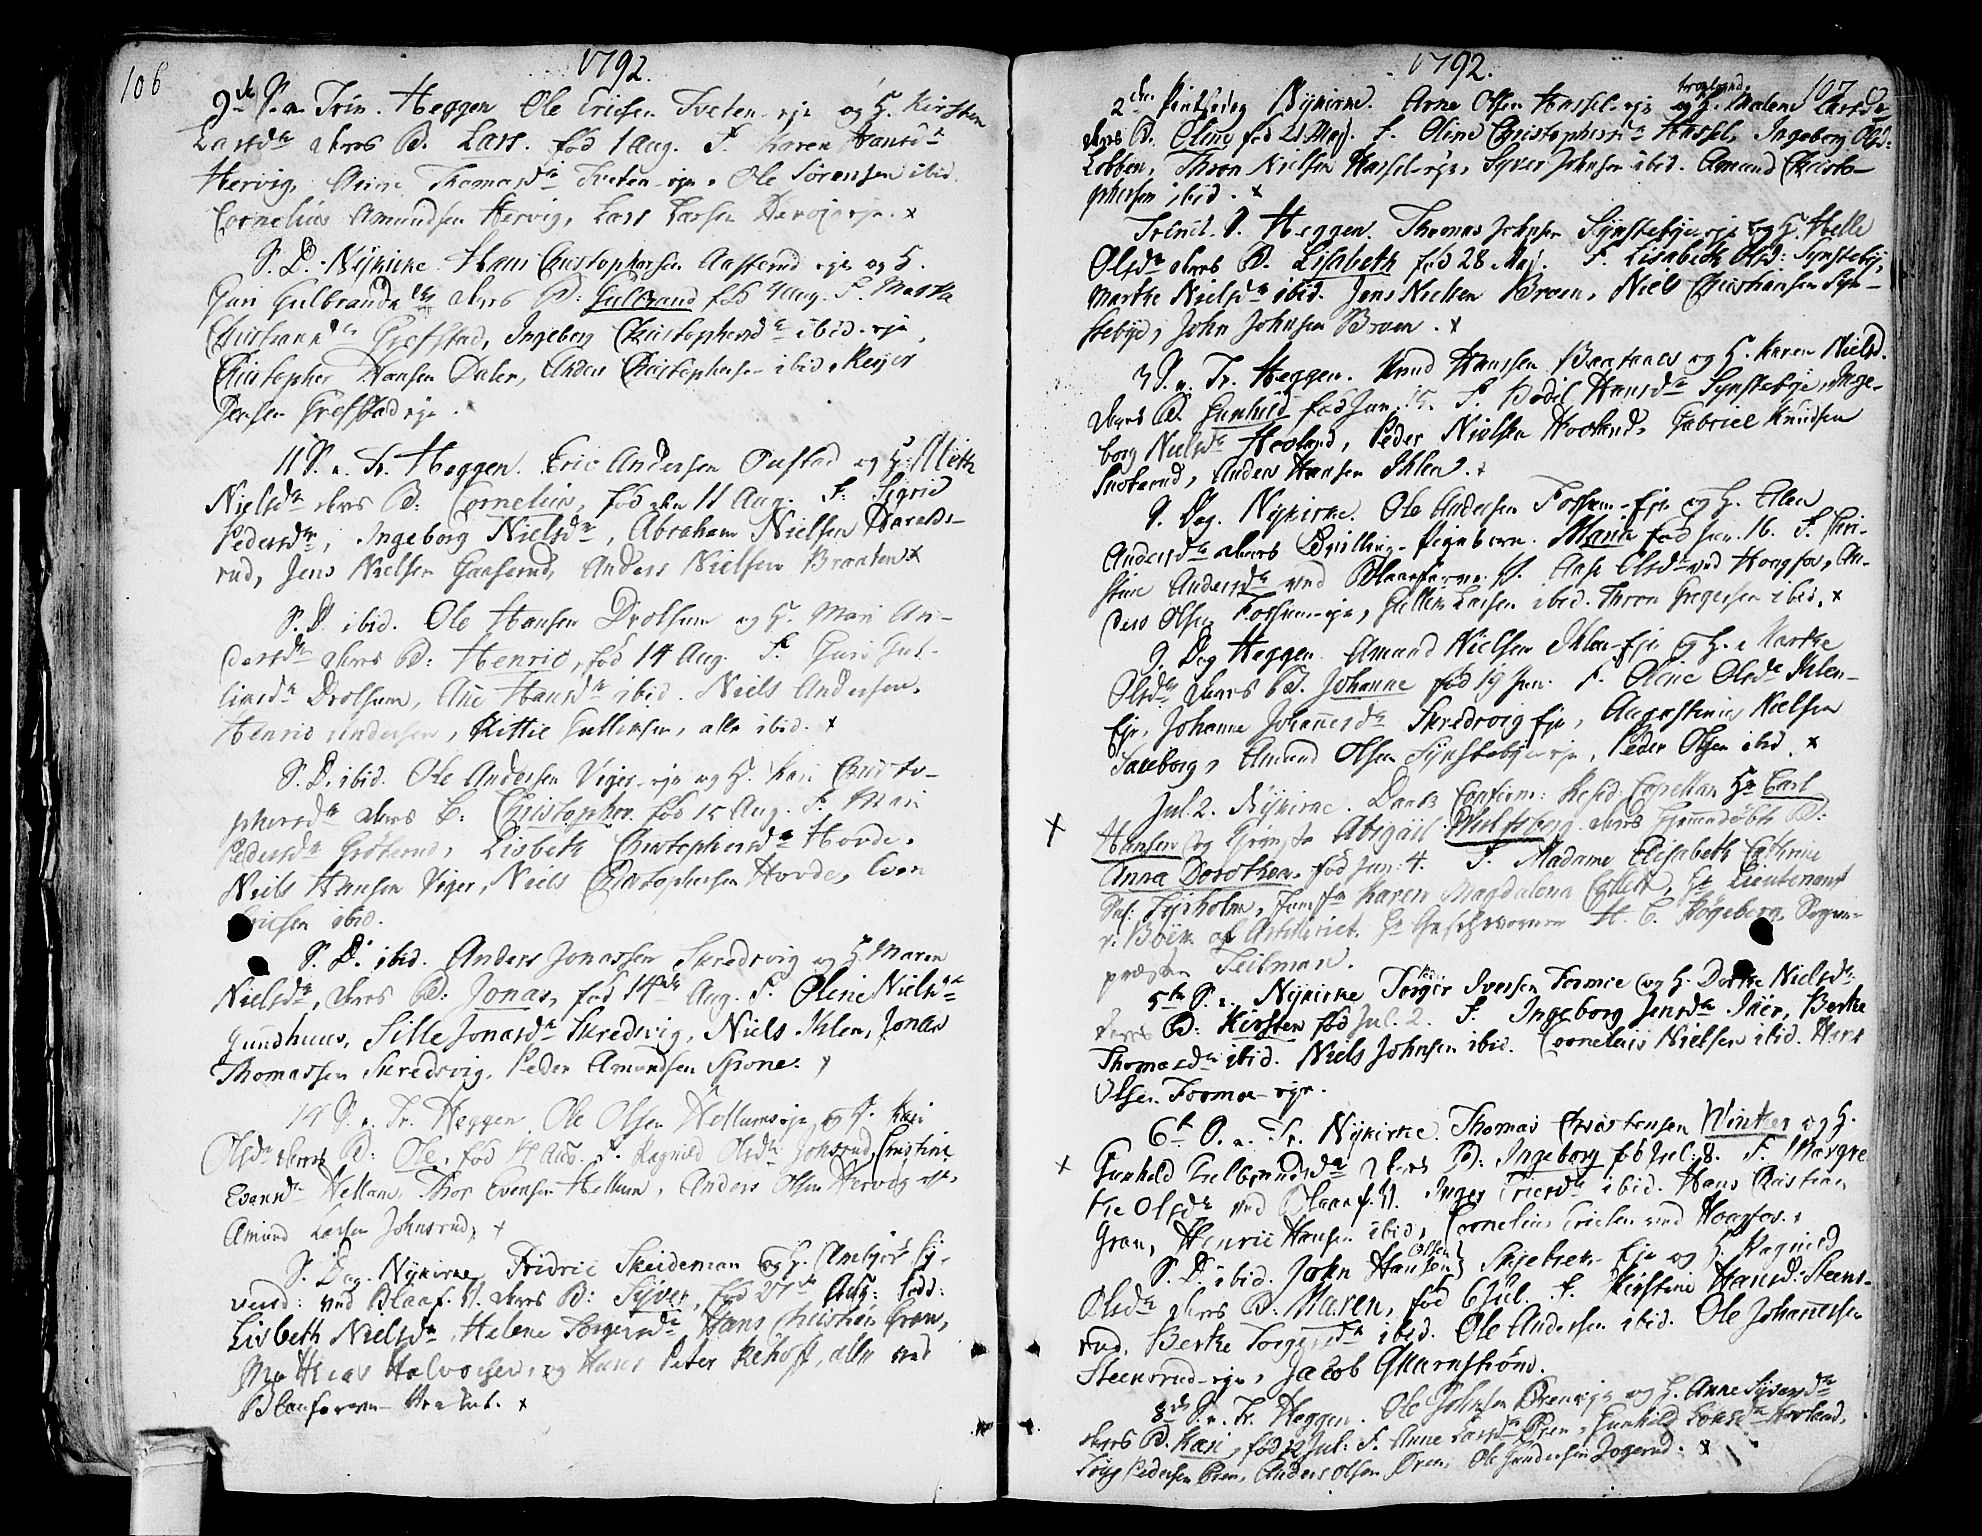 106
1792.
9de S. a. Trin. Heggen Ole Ericsen Tveten-eje og H. Kirsten
Larsdr deres B. Lars. fød 1 Aug. F. Karen Hansdr
Hervig, Anne Thomasdr Tveten-eje, Ole Sörensen ibid.
Cornelius Amundsen Hervig, Lars Larsen eje. x
S. D. Nykirke Hans Christophersen Aasterud eje og H.
Guri Gulbrandsdr deres B: Gulbrand fød 4 Aug. F. Marthe
Christiansdr Grefstad, Ingeborg Christophersdr ibid. eje,
Christopher Hansen Dalen, Anders Christophersen ibid, Reyer
Jensen Grefstad eje.
11 S. a. Tr. Heggen. Eric Andersen Onstad og H. Aleth
Nielsdr deres B: Cornelius, fød den 11 Aug. F: Sigrid
Pedersdr, Ingeborg Nielsdr, Abraham Nielsen Harelds-
rud, Jens Nielsen Gaaserud, Anders Nielsen Braaten x
S. D. ibid. Ole Hansen Drolsum og H. Mari An-
dersdr deres B: Henric, fød 14 Aug. F. Guri Gul-
Drolsum, Ane Hansdr ibid. Niels Andersen,
Henric Andersen, Kittil Gullensen, alle ibid. x
S. D. ibid. Ole Andersen Viger-eje og H. Kari Christo-
phersdr deres B: Christopher fød 15 Aug. F. Mari
Pedersdr Gröterud, Lisbeth Christophersdr Hovde,
Niels Hansen Viger, Niels Christophersen Hovde, Even
Ericsen ibid.
S. D. ibid. Anders Jonassen Skredsvig og H. Maren
Nielsdr, deres B: Jonas, fød 14de Aug. F. Oline Nielsdr
Gundhuus, Sille Jonasdr Skredsvig, Niels Ihlen, Jonas
Thomassen Skredsvig, Peder Amundsen Spone. x
14 S. a. Tr. Heggen Ole Olsen Hellumseje og H. Kari
Olsdr deres B: Ole, fød 14 Aug. F. Ragnild Olsdr Johnsrud, Christine
Evensdr Hellum, Thor Evensen Hellum, Anders Olsen Hervig eje,
Amund Larsen Johnsrud, x
S. Dag. Nykirke Fridric Skeideman og H. Anebjör Sy-
versd: ved Blaaf. V. deres B: Syver, fød 27de Aug: Fadd:
Lisbeth Nielsdr, Helene Torgersdr, Hans Christian Gran,
Mathias Halvorsen, og Hans Peter Kehoff, alle ved
Blaafarve-Værket. x
1792.
107
2den Pintsedag Nykirke. Arne Olsen Hassel-eje og H. Malene Larsdr
deres B. Oline fød 21 Maj. F. Oline Christophersdr Hassel, Ingeborg Olsd:
Lobben, Thron Nielsen Hassel-eje, Syver Johnsen ibid. Amund Christo-
phersen ibid. x
Trinit. S. Heggen. Thomas Johnsen Synstebyeeje og H. Helle
Olsdr deres B. Lisabeth fød 28 Maj. F. Lisabeth Olsd: Synsteby,
Marthe Nielsdr ibid. Jens Nielsen Braen, Niels Christiansen Syn-
stebye, John Johnsen Braen. x
3 S. a. Tr. Heggen. Knud Hanssen Baastanes og H. Karen Nielsd.
deres B. Gunhild fød Jun. 15. F. Bodil Hansdr Synstebye, Inge-
borg Nielsdr Hovland, Peder Nielsen Hovland, Gabriel Knudsen
Snoterud, Anders Hansen Ihlen. x
S. Dag. Nykirke. Ole Andersen Fossum-eje og H. Elen
Andersdr deres Tvilling-Pigebarn. Maria fød Jun. 16. F. Kri-
stine Andersdr ved Blaafarve V. Anse Olsdr ved Hoagfos, An-
ders Olsen Fossum-eje, Gullik Larsen ibid. Thron Gregersen ibid. x
S. Dag Heggen. Amund Nielsen Ihlen-Eje og H. Marthe
Olsdr deres B. Johanne fød 19 Jun. F. Oline Olsdr Ihlen-
Eje, Johanne Johannesdr Skredsvig Eje, Augustinus Nielsen
Saxeborg, Amund Olsen Synstebye-eje, Peder Olsen ibid. x
Jul. 2. Nykirke. Daab Confirm: Resid: Capellan Hr Carl
Hansen og Abigail Wulfsberg deres Hjemmedøbte B:
Anna Dorothea, fød Jun. 4. F. Madame Elisabeth Cathrine
Tyrholm, Jomfr Karen Magdalena Collett, Hr Lieutenant
v. Böyn af Artilleriet. Hr Geschworner H. C. Högeberg, Sogne-
præsten Feilman.
5te S. a. Nykirke Torger Iversen Formoe og H. Dorthe Nielsdr
deres B: Kirsten fød Jul. 2. F. Ingeborg Jensdr Juer, Berthe
Thomasdr ibid. Niels Johnsen ibid. Cornelius Nielsen ibid. Hans
Olsen Formoe-eje.
6te S. a. Tr. Nykirke. Thomas Christensen Winter og H.
Gunhild Gulbrandsdr deres B: Ingeborg fød Jul. 8. F. Margre-
the Olsdr ved Blaaf. V. Inger Ericsdr ibid. Hans Christian
Gran, Henric Hansen ibid, Cornelius Ericsen ved Hoagfos.
S. D. ibid. John Hansen Olsen Skjetret-Eje og H. Ragnild
Olsdr deres B. Maren, fød 6 Jul. F. Kirstine Hansd: Steens-
rud, Berthe Torgersdr ibid. Ole Andersen ibid. Ole Johannessen
Steensrud-eje, Jacob Qvarnstrømd.
8de S. a. Tr. Heggen. Ole Johnsen Breneje og H. Anne Syversdr
deres B. Kari, fød 12 Jul: F. Anne Larsdr Øren, Gunhild Hovland,
Pedersen Øren, Anders Olsen Øren, Ole Gundersen Jogerud. x